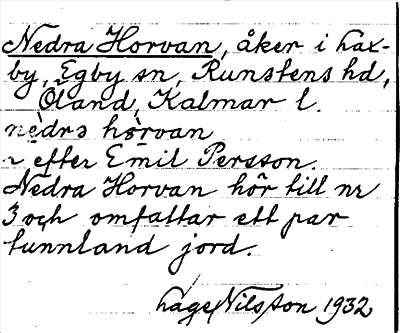 Nedra Horvan, åker i Lax-
by, Egby sn, Runstens hd,
Öland, Kalmar l.
nèdrɜ hòrvan
efter Emil Persson.
Nedra Horvan hör till nr
3 och omfattar ett par
tunnland jord.
Hage Nilsson 1932